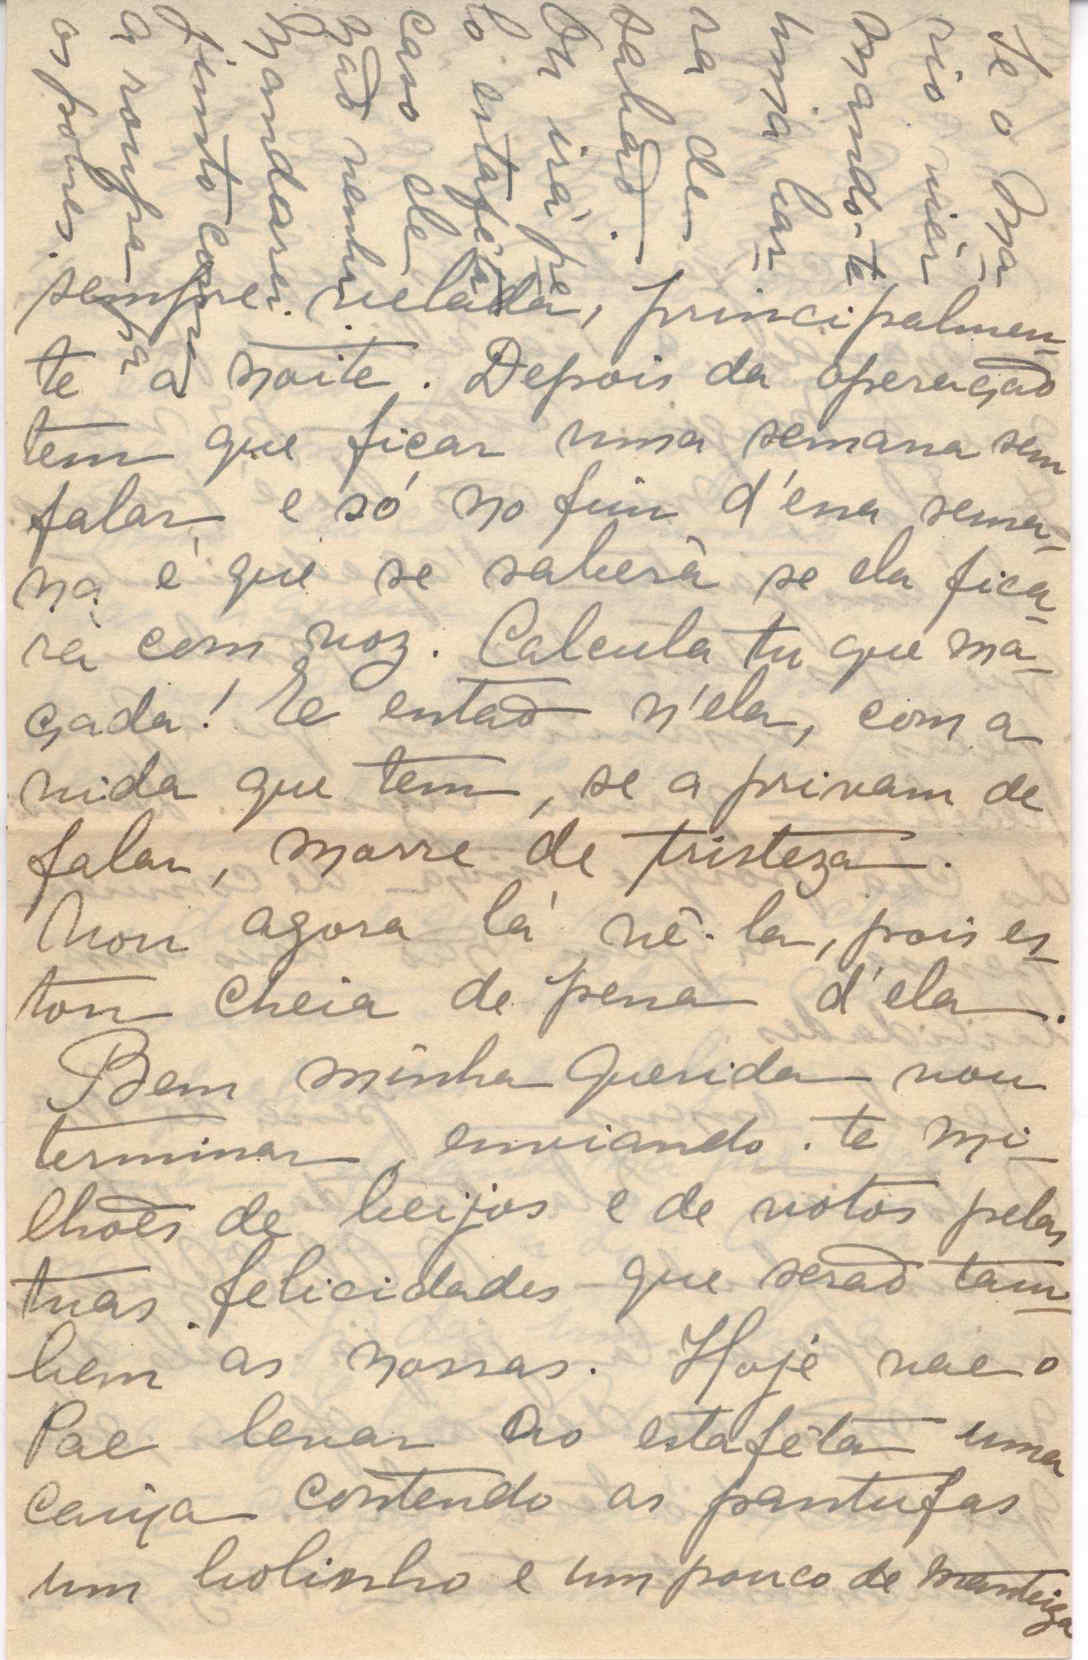 sempre velada, principalmen-
te á noite. Depois da operação
tem que ficar uma semana sem
falar e só no fim d'essa sema-
na é que se saberá se ela fica-
rá com voz. Calcula tu que ma-
çada! E então n'ela, com a
vida que tem, se a privam de
falar, morre de tristeza.
Vou agora lá vê-la, pois es-
tou cheia de pena d'ela.
Bem minha querida vou
terminar, enviando-te mi-
lhões de beijos e de votos pelas
tuas felicidades que serão tam-
bem as nossas. Hoje vae o
Pae levar ao estafêta uma
caixa contendo as pantufas
um bolinho e um pouco de manteiga
Se o Ma-
rio viér
mando-te
uma bar-
ra de
sabão.
Ou irá pe-
lo estafêta
caso ele
não venha.
Mandarei
junto com
a roupa pa-
os pobres.